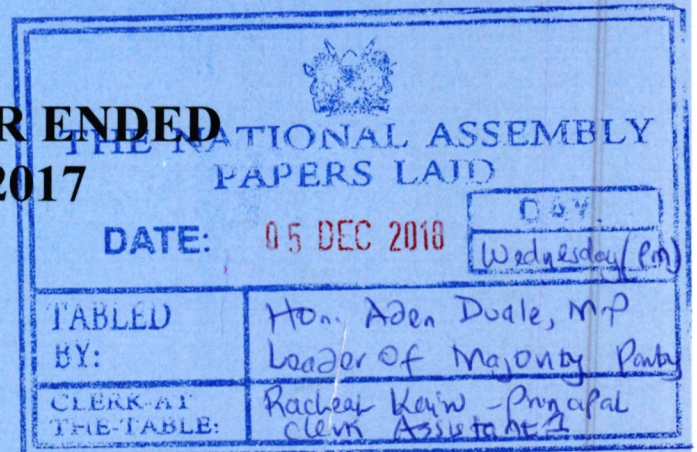 R ENDED
2017
THE NATIONAL ASSEMBLY
PAPERS LAID
DATE: 05 DEC 2018
DAY.
Wednesday (pm)
TABLED BY:
Hon. Aden Duale, MP
Leader of Majority Party
CLERK-AT THE-TABLE:
Principal
Clerk Assistant 1